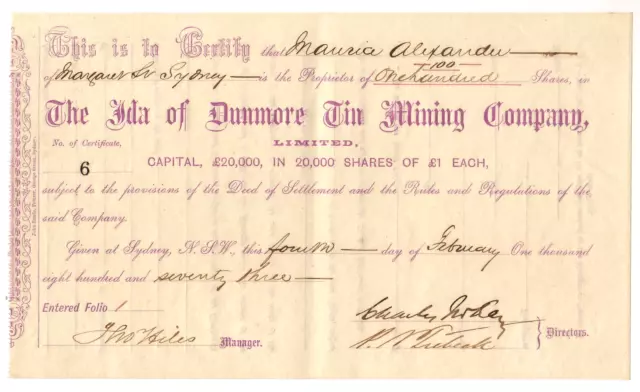 This is to Certify that Maurice Alexander
100
of Margaret St Sydney is the Proprietor of One hundred Shares, in
The Ida of Dunmore Tin Mining Company,
No. of Certificate, LIMITED,
6 CAPITAL, £20,000, IN 20,000 SHARES OF £1 EACH,
subject to the provisions of the Deed of Settlement and the Rules and Regulations of the
said Company.
Given at Sydney, N.S.W., this fourth day of February One thousand
eight hundred and seventy three
Entered Folio 1
Thos Hiles Manager. Directors.